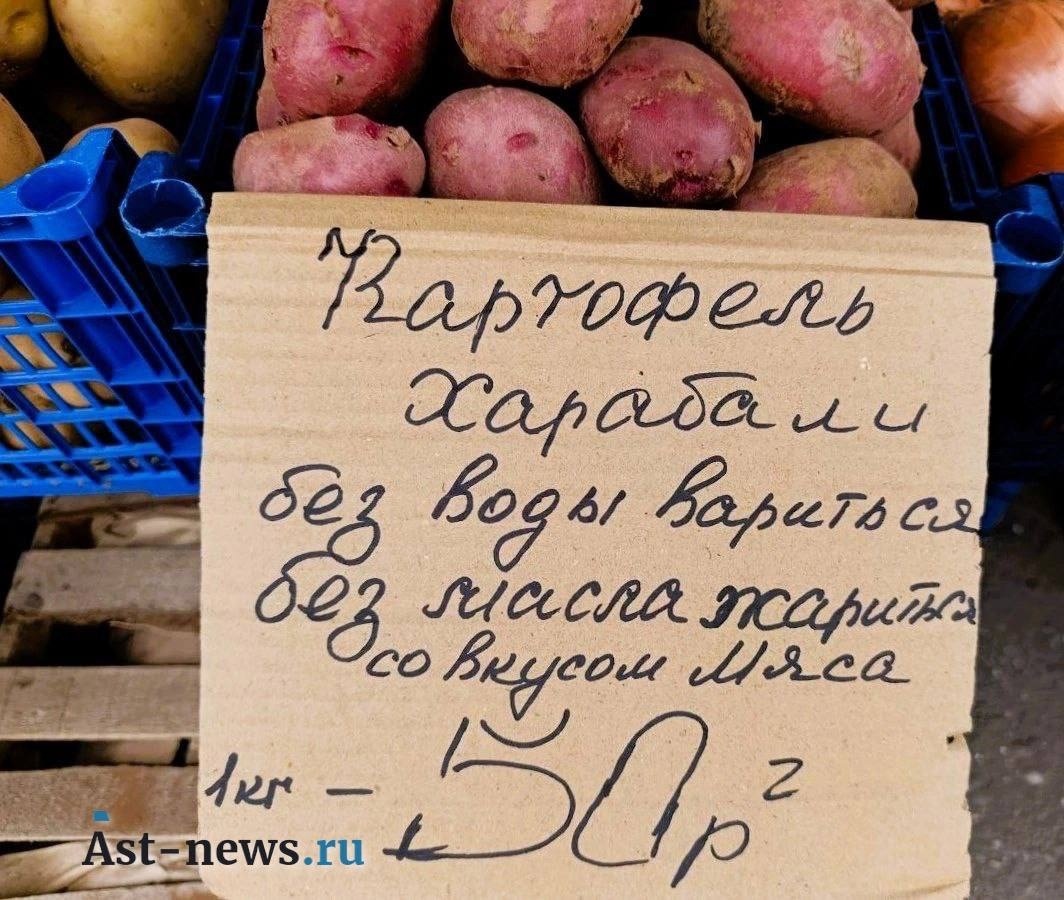 Картофель
Харабали
без воды вариться
без масла жариться
со вкусом мяса
1кг – 50р
Ast-news.ru